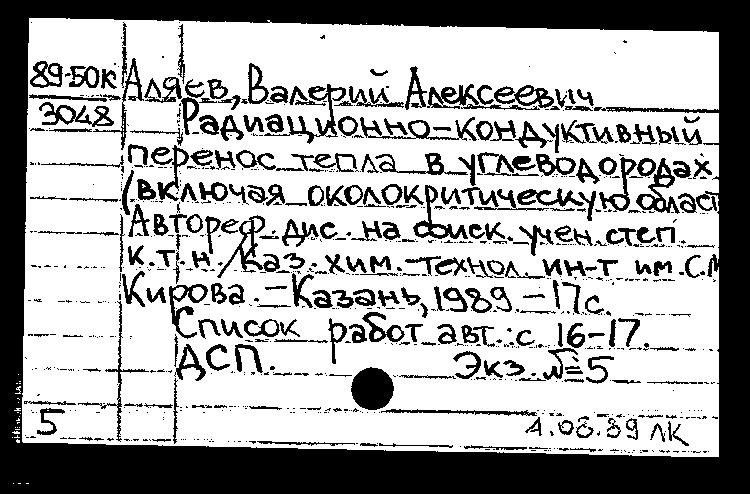 89-50К Аляев, Валерий Алексеевич
3048 Радиационно-кондуктивный
перенос тепла в углеводородах
(включая околокритическую област
Автореф. дис. на соиск. учен. степ.
к.т.н. / Каз. хим.-технол. ин-т им. С.М
Кирова. - Казань, 1989. - 17 с.
Список работ авт.: с 16-17.
ДСП. Экз. № 5
5 1.08.89 ЛК